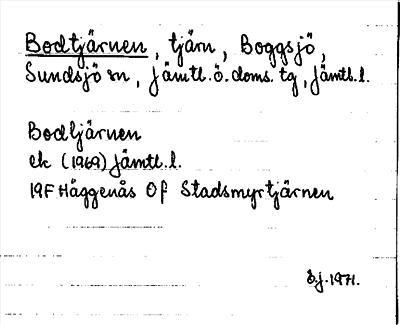 Bodtjärnen, tjärn, Boggsjö,
Sundsjö sn, Jämtl. ö. doms. tg, Jämtl. l.
Bodtjärnen
ek (1969) Jämtl. l.
19F Häggenås 0f Stadsmyrtjärnen
1971.